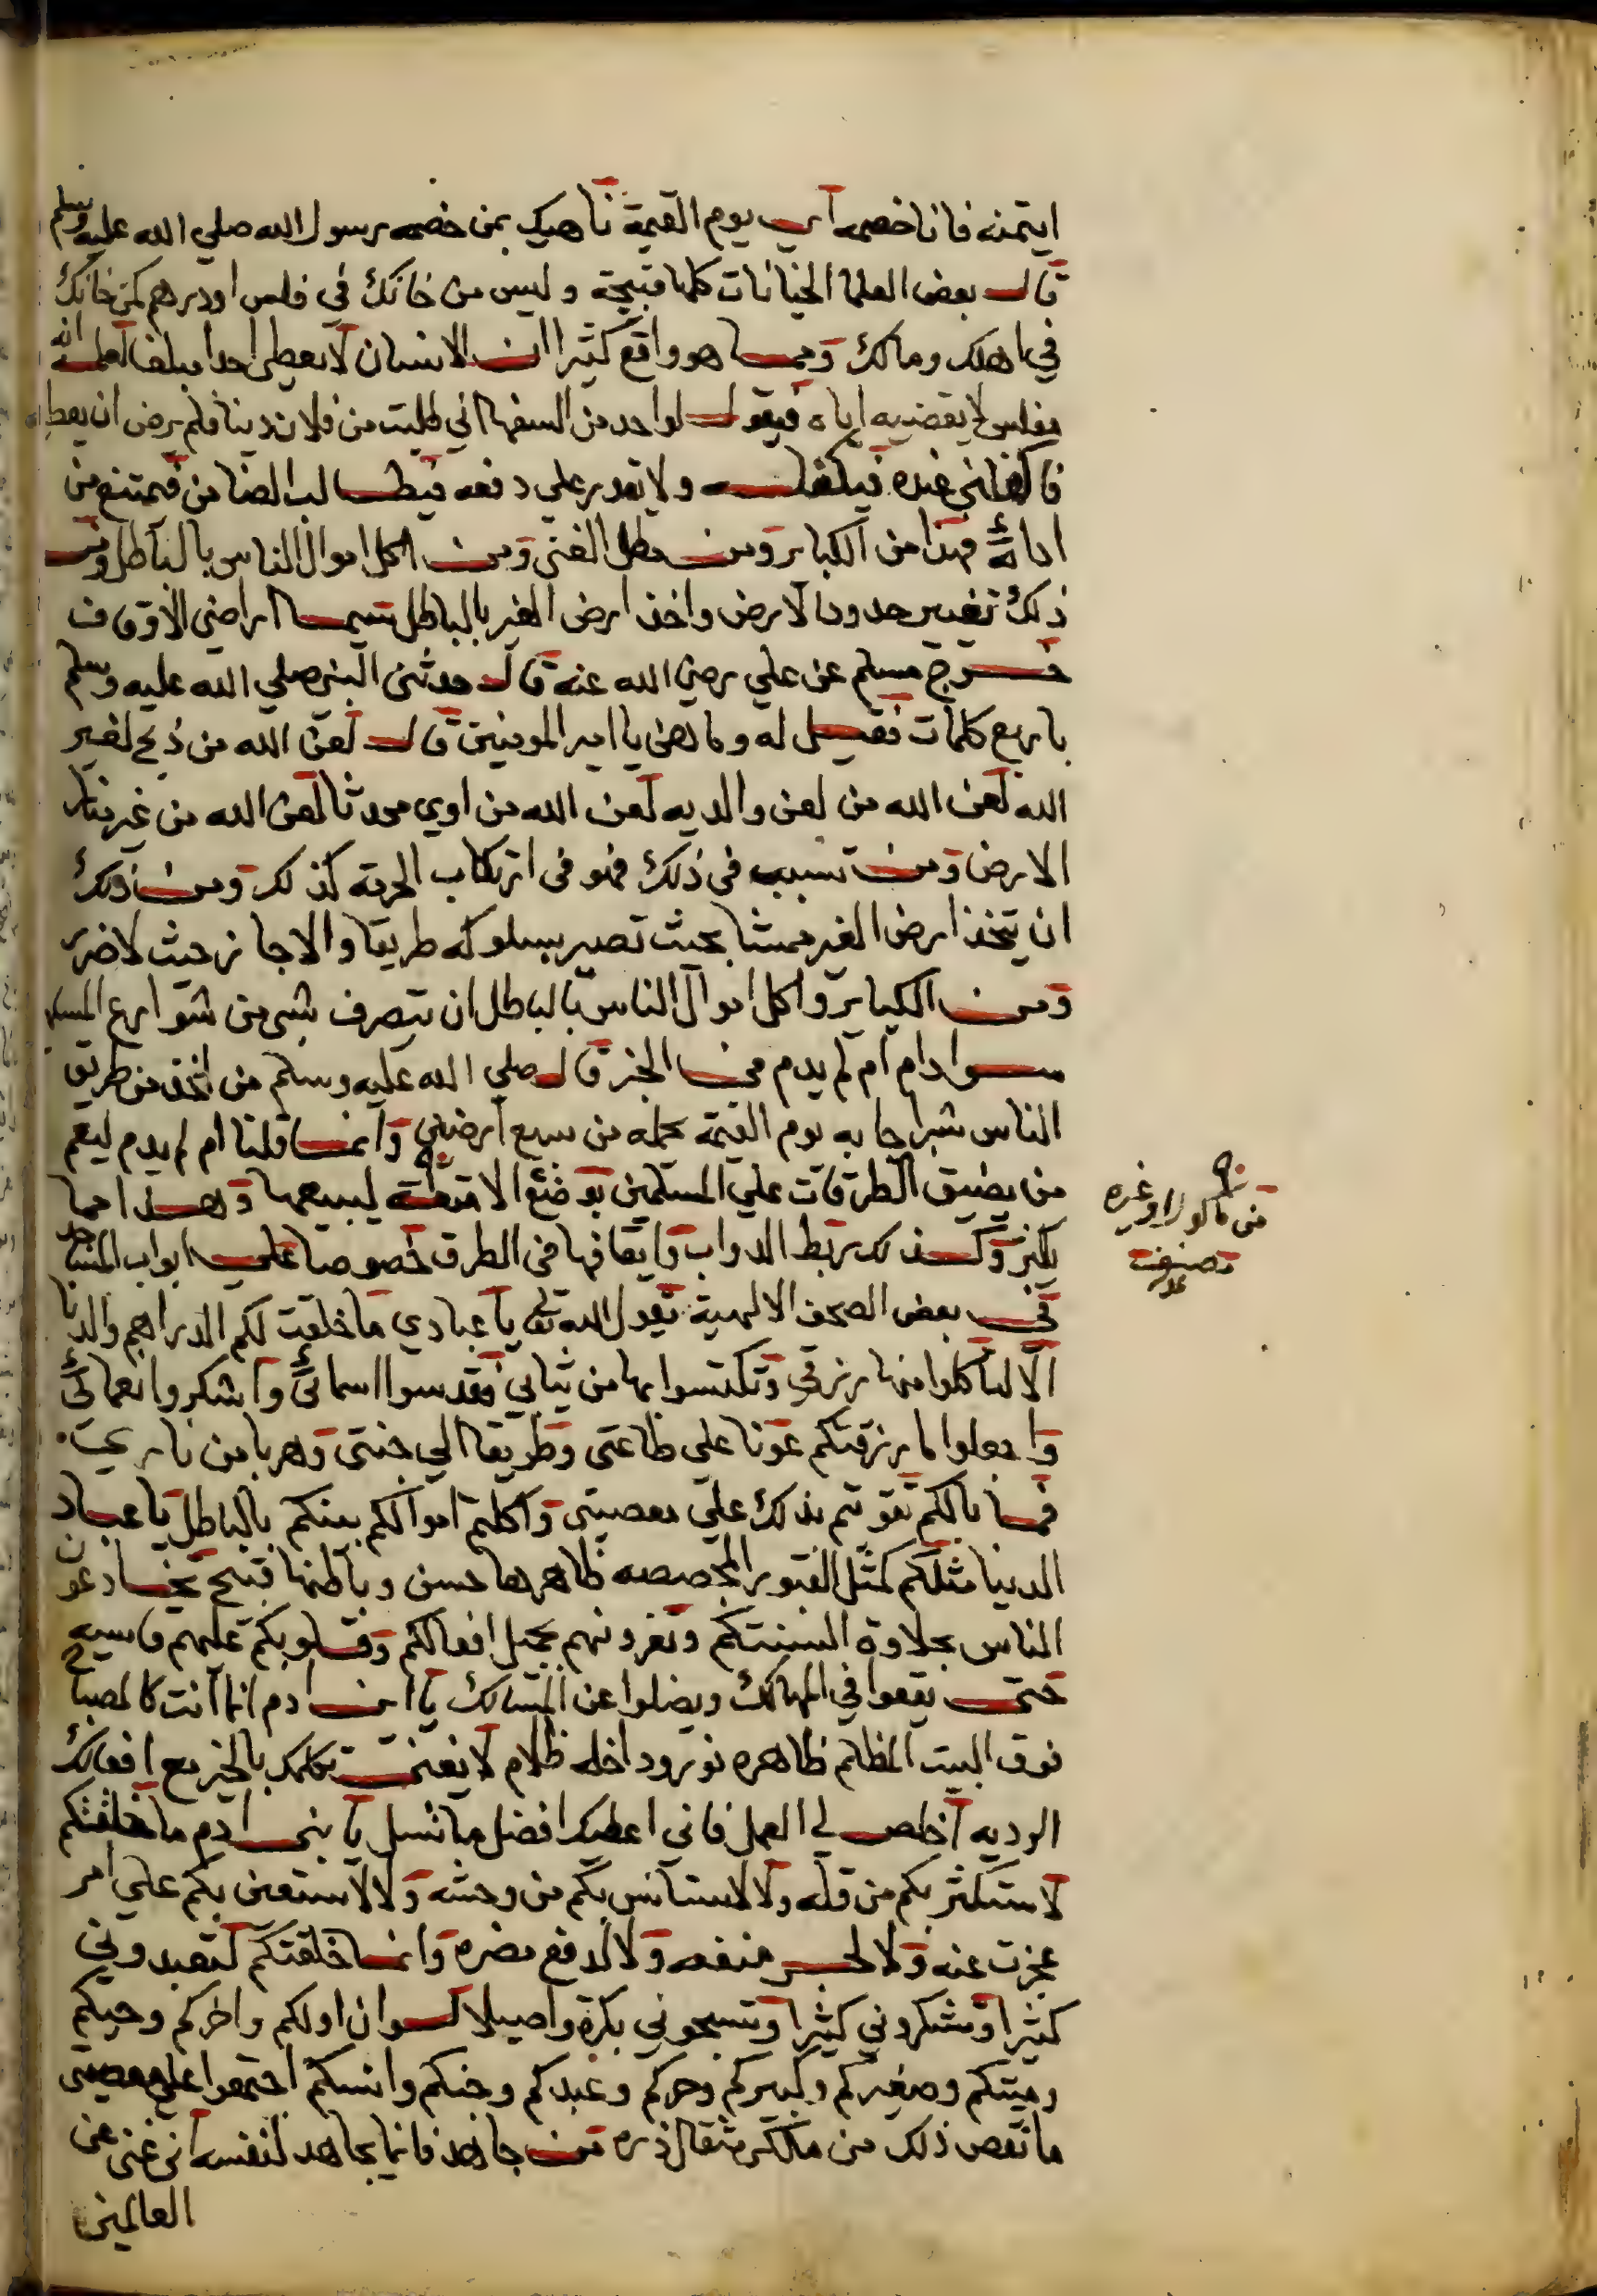 ايتمنه فانا خصمه اي يوم القيمة ناهيك بمن خصمه رسول الله صلي الله عليه وسلم
قال بعض العلما الخيانات كلها قبيحة وليس من خانك في فلس او درهم كمن خانك
في اهلك ومالك ومما هو واقع كثيرا ان الانسان لا يعطي احدا مبلغا لعلمه انه
مفلس لا يقضيه اياه فيقول لواحد من السفها اني طلبت من فلان دينا فلم يرض ان يعط
فاكفلني عنده فيكفله ولا يقدر علي دفعه فيطالب الضامن فيمتنع من
ادائه فهذا من الكباير ومن مطل الغني ومن اكل اموال الناس بالباطل ومن
ذلك تغيير حدود الارض واخذ ارض الغير بالباطل سيما اراضي الاوقاف
خرج مسلم عن علي رضي الله عنه قال حدثني النبي صلي الله عليه وسلم
باربع كلمات فقيل له وما هن يا امير المومنين قال لعن الله من ذبح لغير
الله لعن الله من لعن والديه لعن الله من اوي محدثا لعن الله من غير منار
الارض ومن تسبب في ذلك فهو في ارتكاب الحرمة كذلك ومن ذلك
ان يتخذ ارض الغير ممشا بحيث تصير بسلوكه طريقا والا جاز حيث لا ضرر
ومن الكباير واكل اموال الناس بالباطل ان يتصرف بشي من شوارع المسلمين
سوا دام ام لم يدم فمن الخبر قال صلي الله عليه وسلم من اخذ من طريق
الناس شبرا جا به يوم القيمة يحمله من سبع ارضين وانما قلنا ام لم يدم ليعم
من يضيق الطرقات علي المسلمين بوضع الامتعة ليبيعها وهذا مما
يكثر وكذلك ربط الدواب وايقافها في الطرق خصوصا علي ابواب المساجد
في بعض الصحف الالهية يقول الله تعالي يا عبادي ما خلقت لكم الدراهم والدنا
الا لتاكلوا منها رزقي وتكتسوا بها من ثيابي فقدسوا اسمائي واشكروا نعمائي
واجعلوا ما رزقتكم عونا علي طاعتي وطريقا الي جنتي وهربا من ناري
فما بالكم تقوتم بذلك علي معصيتي واكلتم اموالكم بينكم بالباطل يا عباد
الدنيا مثلكم كمثل القبور المجصصه ظاهرها حسن وباطنها قبيح تخادعون
الناس بحلاوة السنتكم وتغرونهم بجميل افعالكم وقلوبكم عليهم قاسيه
حتي يقعوا في المهالك ويضلوا عن المسالك يا ابن ادم انما انت كالمصباح
فوق البيت المظلم ظاهره نور وداخله ظلام لا يغنيك تكلمك بالخير مع افعالك
الرديه اخلص لي العمل فاني اعطيك افضل ما تسل يا بني ادم ما خلقتكم
لاستكثر بكم من قله ولا لاستانس بكم من وحشه ولا لاستعين بكم علي امر
عجزت عنه ولا لجر منفعه ولا لدفع مضره وانما خلقتكم لتعبدوني
كثيرا وتشكروني كثيرا وتسبحوني بكرة واصيلا لو ان اولكم واخركم وحيكم
وميتكم وصغيركم وكبيركم وحركم وعبدكم وجنكم وانسكم اجتمعوا علي معصيتي
ما نقص ذلك من ملكي مثقال ذره من جاهد فانما يجاهد لنفسه اني غني عن
العالمين
من ماكول او غيره